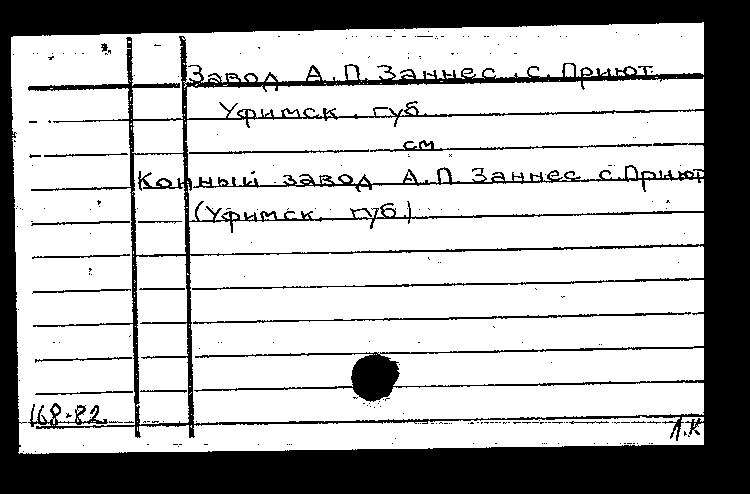 Завод А.П. Заннес, с. Приют
Уфимск. губ.
см.
Конный завод А.П. Заннес с. Приют
(Уфимск. губ.)
168-82.
Л.К